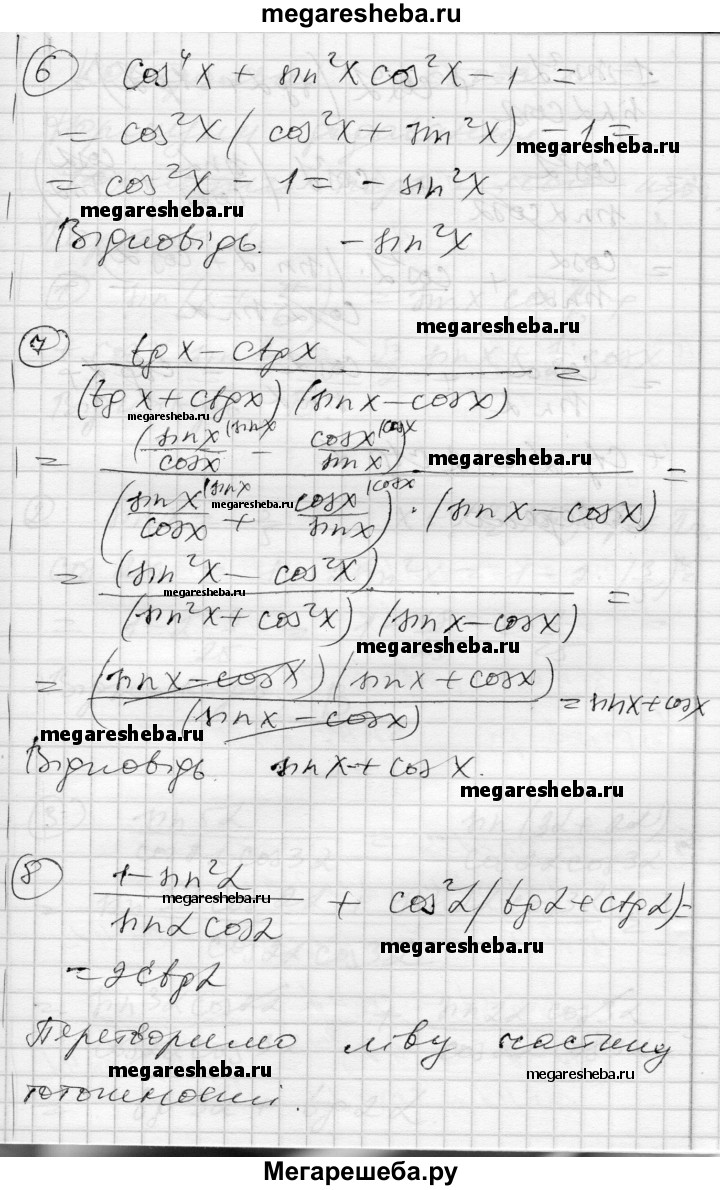 megaresheba.ru
6 cos⁴x + sin²x cos²x − 1 =
= cos²x (cos²x + sin²x) − 1 =
megaresheba.ru
= cos²x − 1 = − sin²x
megaresheba.ru
Відповідь. − sin²x
megaresheba.ru
7 (tg x − ctg x) / ((tg x + ctg x)(sin x − cos x)) =
megaresheba.ru
= (sin x/cos x (sin x − cos x/sin x (cos x) / ((sin x/cos x (sin x + cos x/sin x (cos x) · (sin x − cos x)) =
megaresheba.ru
megaresheba.ru
= (sin²x − cos²x) / ((sin²x + cos²x) (sin x − cos x)) =
megaresheba.ru
megaresheba.ru
= (sin x − cos x)(sin x + cos x) / (sin x − cos x) = sin x + cos x
megaresheba.ru
Відповідь. sin x + cos x.
megaresheba.ru
8 (1 − sin²α) / (sin α cos α) + cos²α (tg α + ctg α) =
megaresheba.ru
megaresheba.ru
= 2ctg α
Перетворимо ліву частину
megaresheba.ru
megaresheba.ru
тотожності.
Мегарешеба.ру